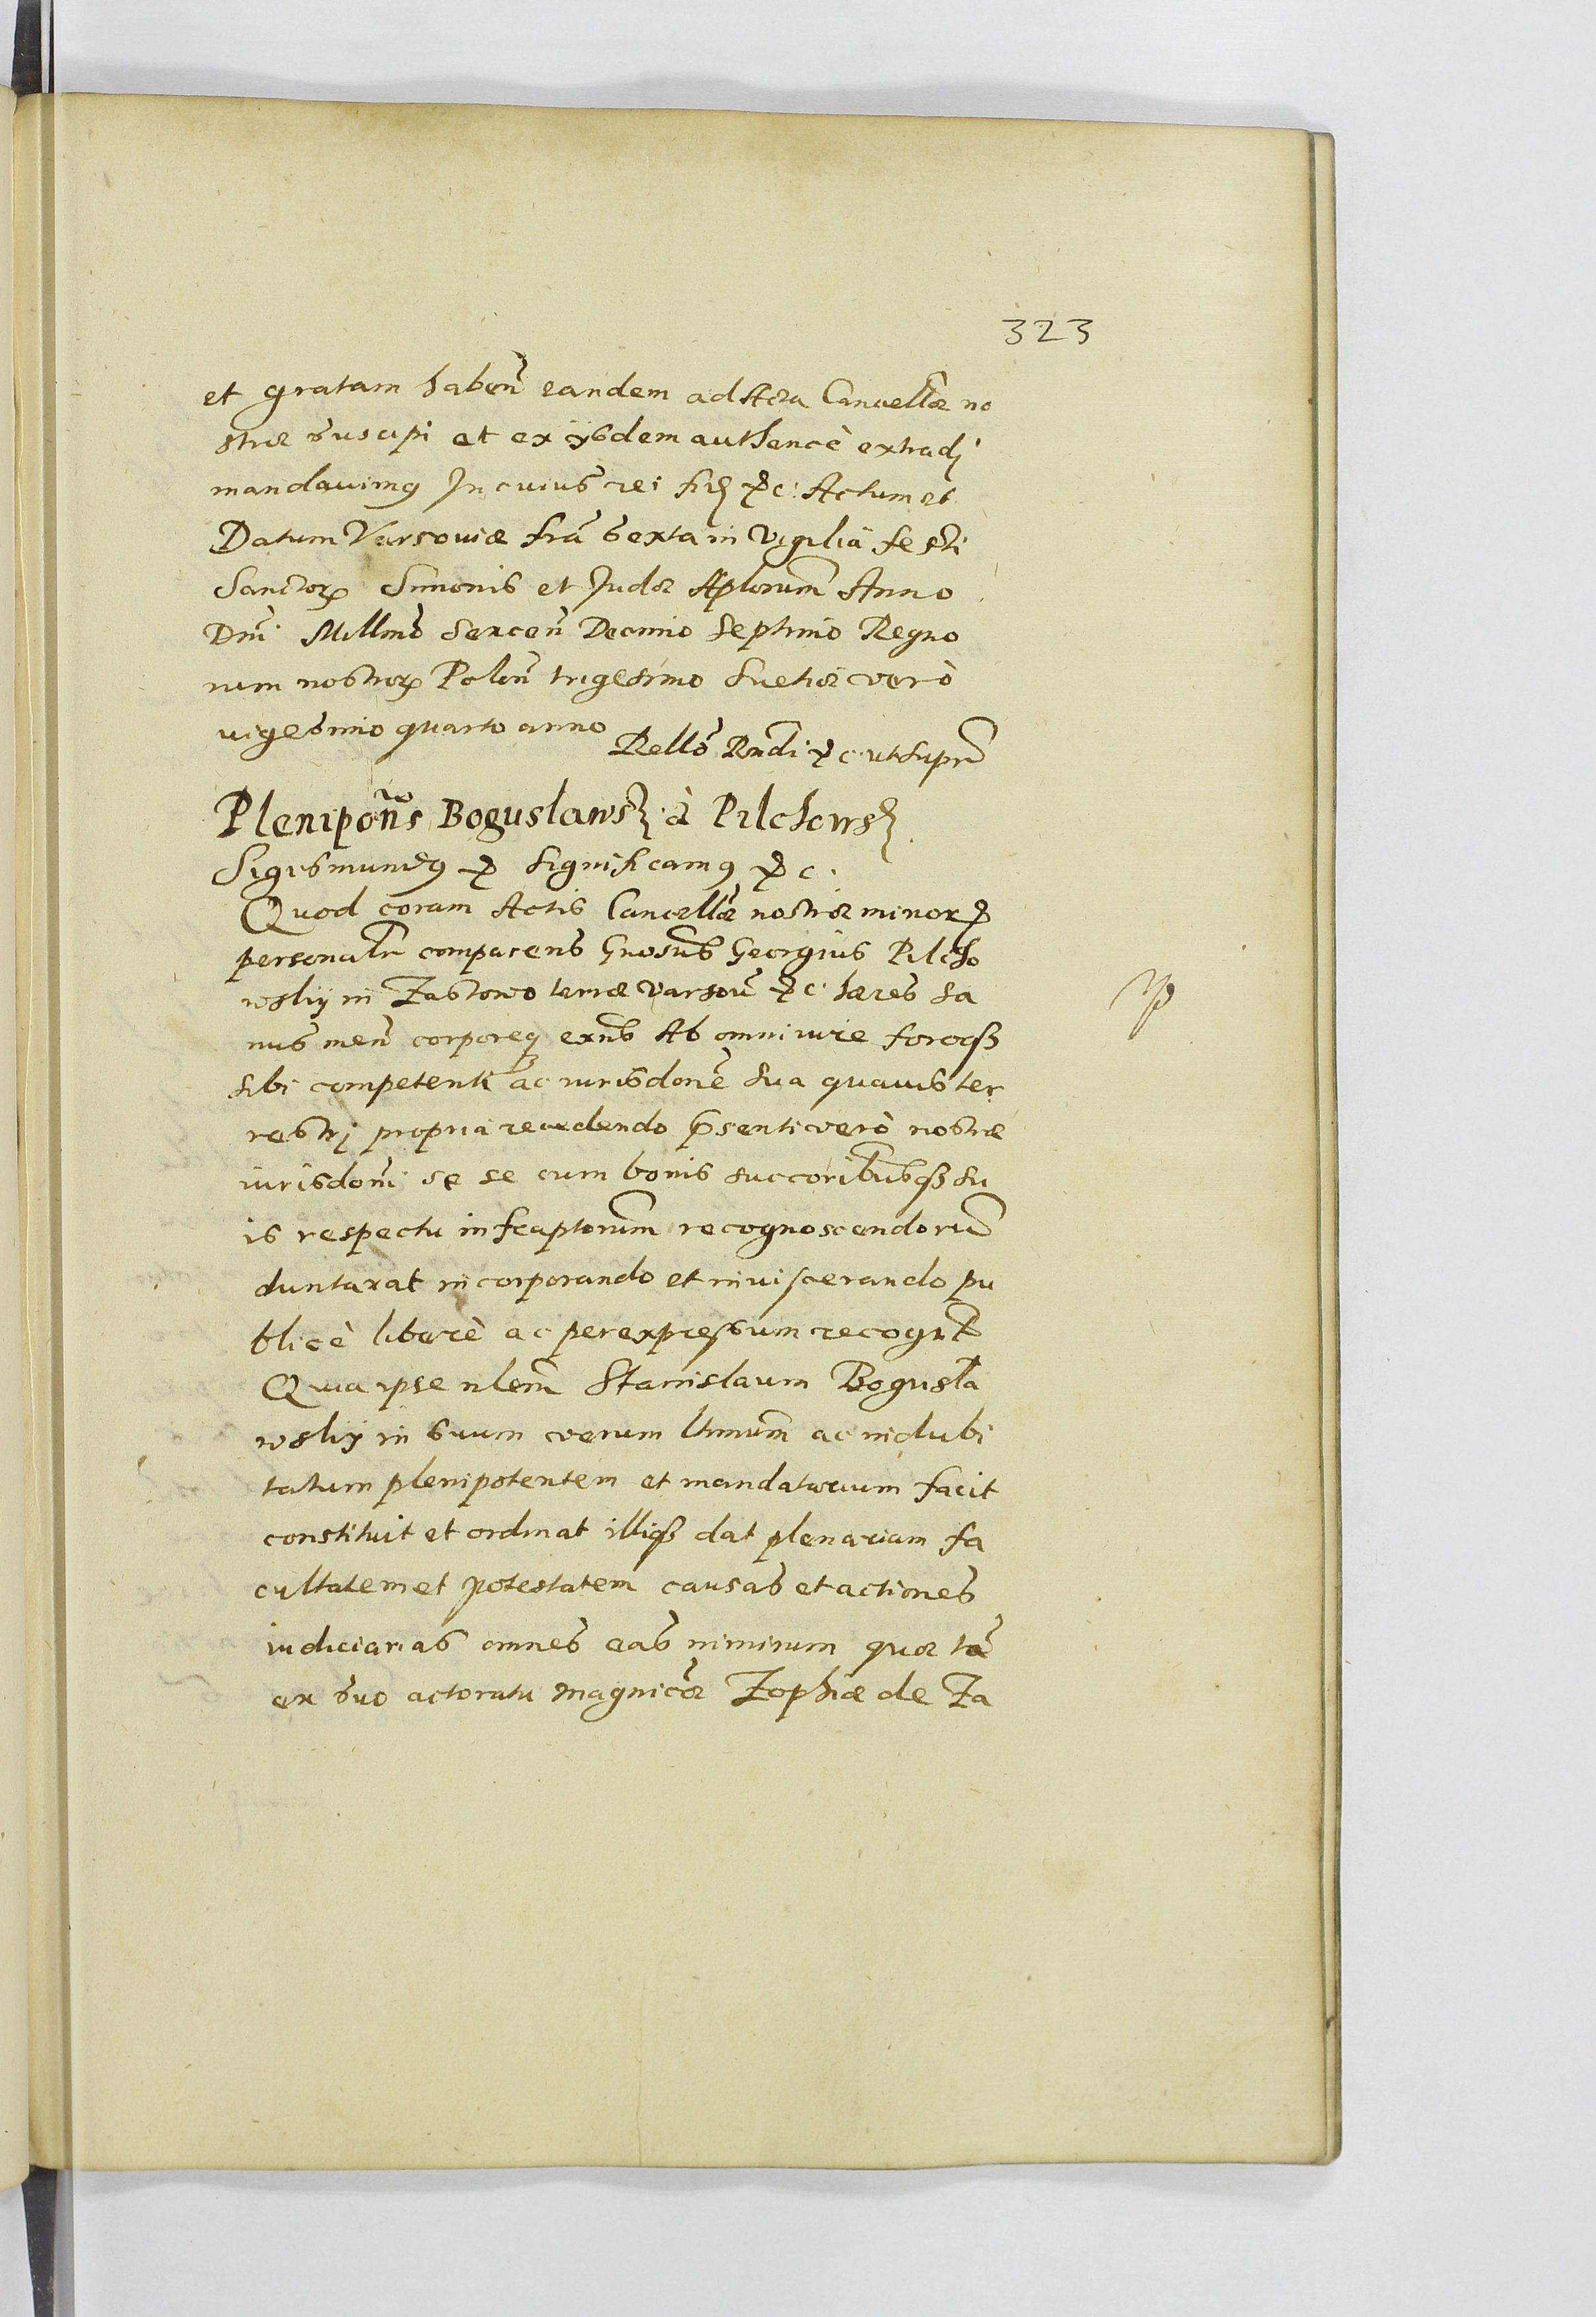 323
et gratam haben̄ eandem ad Acta Cancellæ no
stræ suscipi et ex ijsdem authencè extradj
mandauimq̨ In cuius rei fid̨ &c: Actum et
Datum Varsouiæ fr̄a sexta in Vigilia festi
Sanctorꝝ Simonis et Judæ Aplorum Anno
Dn̄i Millmo Sexcen̄ Decimo Septimo Regno
rum nostrorꝝ Polon̄ trigesimo Suetiæ verò
vigesimo quarto anno
Rellō Rndi &c ut supr̄
Plenipons̄ Boguslaws: à Pilchows
Sigismundq̨ & significamq̨ &c.
Quod coram Actis Cancellæ nostræ minorꝝ
personalr̄ comparens Gnosus Georgius Pilcho
wskij in Zastowo terræ Varsou̅ &c. hæres sa
nus men̄ corporeq̨ exn̄s Ab omni iure foroqꝫ
sibi competenti ac iurisdonē sua quauis ter
restrj propria recedendo p̄senti verò nostræ
iurisdoni se se cum bonis succoribusqꝫ su
is respectu infraptorum recognoscendorū
duntaxat incorporando et inuiscerando pu
blicè liberè ac per expressum recognt
Quia ipse nlem̄ Stanislaum Bogusla
wskij in suum verum ltimum ac indubi
tatum plenipotentem et mandatarium facit
constituit et ordinat illiqꝫ dat plenariam fa
cultatem et potestatem causas et actiones
iudiciarias omnes eas nimirum quæ tā
ex suo actoratu magnicæ Zophiæ de Za